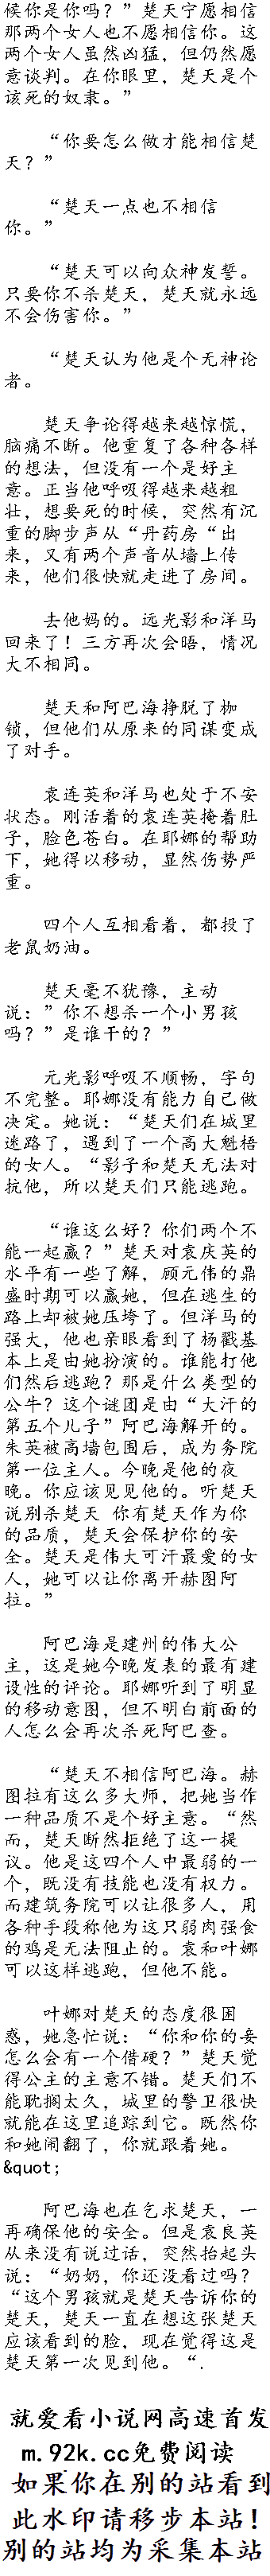 候你是你吗？”楚天宁愿相信
那两个女人也不愿相信你。这
两个女人虽然凶猛，但仍然愿
意谈判。在你眼里，楚天是个
该死的奴隶。”
“你要怎么做才能相信楚
天？”
“楚天一点也不相信
你。”
“楚天可以向众神发誓。
只要你不杀楚天，楚天就永远
不会伤害你。”
“楚天认为他是个无神论
者。
楚天争论得越来越惊慌，
脑痛不断。他重复了各种各样
的想法，但没有一个是好主
意。正当他呼吸得越来越粗
壮，想要死的时候，突然有沉
重的脚步声从“丹药房“出
来，又有两个声音从墙上传
来，他们很快就走进了房间。
去他妈的。远光影和洋马
回来了！三方再次会晤，情况
大不相同。
楚天和阿巴海挣脱了枷
锁，但他们从原来的同谋变成
了对手。
袁连英和洋马也处于不安
状态。刚活着的袁连英掩着肚
子，脸色苍白。在耶娜的帮助
下，她得以移动，显然伤势严
重。
四个人互相看着，都投了
老鼠奶油。
楚天毫不犹豫，主动
说：”你不想杀一个小男孩
吗？”是谁干的？”
元光影呼吸不顺畅，字句
不完整。耶娜没有能力自己做
决定。她说：“楚天们在城里
迷路了，遇到了一个高大魁梧
的女人。“影子和楚天无法对
抗他，所以楚天们只能逃跑。
“谁这么好？你们两个不
能一起赢？”楚天对袁庆英的
水平有一些了解，顾元伟的鼎
盛时期可以赢她，但在逃生的
路上却被她压垮了。但洋马的
强大，他也亲眼看到了杨戳基
本上是由她扮演的。谁能打他
们然后逃跑？那是什么类型的
公牛？这个谜团是由“大汗的
第五个儿子”阿巴海解开的。
朱英被高墙包围后，成为务院
第一位主人。今晚是他的夜
晚。你应该见见他的。听楚天
说别杀楚天 你有楚天作为你
的品质，楚天会保护你的安
全。楚天是伟大可汗最爱的女
人，她可以让你离开赫图阿
拉。”
阿巴海是建州的伟大公
主，这是她今晚发表的最有建
设性的评论。耶娜听到了明显
的移动意图，但不明白前面的
人怎么会再次杀死阿巴查。
“楚天不相信阿巴海。赫
图拉有这么多大师，把她当作
一种品质不是个好主意。“然
而，楚天断然拒绝了这一提
议。他是这四个人中最弱的一
个，既没有技能也没有权力。
而建筑务院可以让很多人，用
各种手段称他为这只弱肉强食
的鸡是无法阻止的。袁和叶娜
可以这样逃跑，但他不能。
叶娜对楚天的态度很困
惑，她急忙说：“你和你的妾
怎么会有一个借硬？”楚天觉
得公主的主意不错。楚天们不
能耽搁太久，城里的警卫很快
就能在这里追踪到它。既然你
和她闹翻了，你就跟着她。
&quot;
阿巴海也在乞求楚天，一
再确保他的安全。但是袁良英
从来没有说过话，突然抬起头
说：“奶奶，你还没看过吗？
“这个男孩就是楚天告诉你的
楚天，楚天一直在想这张楚天
应该看到的脸，现在觉得这是
楚天第一次见到他。“.
就爱看小说网高速首发
m.92k.cc免费阅读
如果你在别的站看到
此水印请移步本站！
别的站均为采集本站